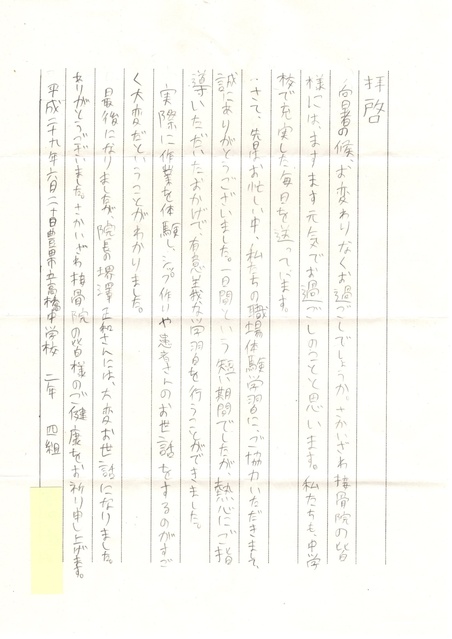 拝啓
向暑の候、お変わりなくお過ごしでしょうか。さかいざわ接骨院の皆
様には、ますます元気でお過ごしのことと思います。私たちも、中学
校で充実した毎日を送っています。
さて、先日はお忙しい中、私たちの職場体験学習に、ご協力いただきまして、
誠にありがとうございました。一日間という短い期間でしたが、熱心にご指
導いただいたおかげで、有意義な学習を行うことができました。
実際に作業を体験し、シップ作りや患者さんのお世話をするのがすご
く大変だということがわかりました。
最後になりましたが、院長の堺澤正和さんには、大変お世話になりました。
ありがとうございました。さかいざわ接骨院の皆様のご健康をお祈り申し上げます。
平成二十九年六月二十日豊田市立高橋中学校 二年 四組